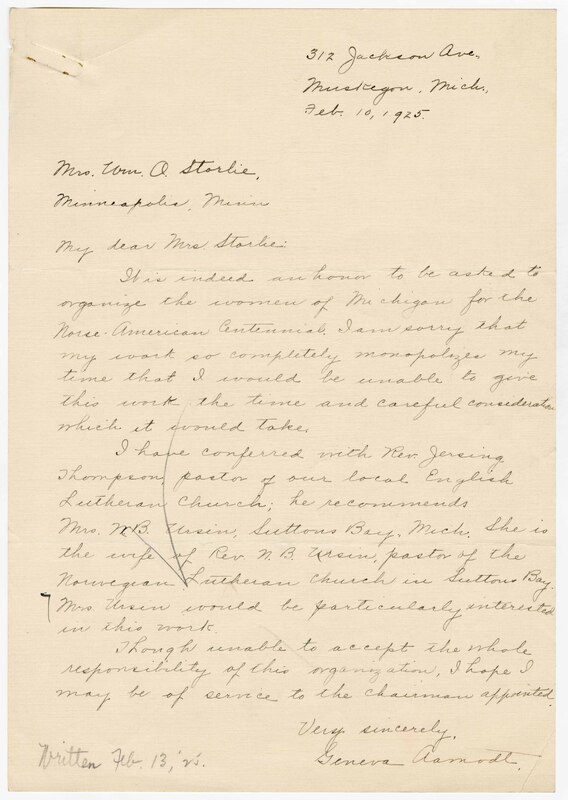 312 Jackson Ave.
Muskegon, Mich.,
Feb. 10, 1925.
Mrs. Wm. O. Storlie,
Minneapolis, Minn
My dear Mrs Storlie:
It is indeed an honor to be asked to
organize the women of Michigan for the
Norse-American Centennial. I am sorry that
my work so completely monopolizes my
time that I would be unable to give
this work the time and careful consideration
which it would take.
I have conferred with Rev. Jersing
Thompson, pastor of our local English
Lutheran Church; he recommends
Mrs. N. B. Ursin, Suttons Bay, Mich. She is
the wife of Rev. N. B. Ursin, pastor of the
Norwegian Lutheran Church in Suttons Bay.
Mrs Ursin would be particularly interested
in this work.
Though unable to accept the whole
responsibility of this organization, I hope I
may be of service to the chairman appointed.
Very sincerely,
Geneva Aamodt.
Written Feb. 13, '25.